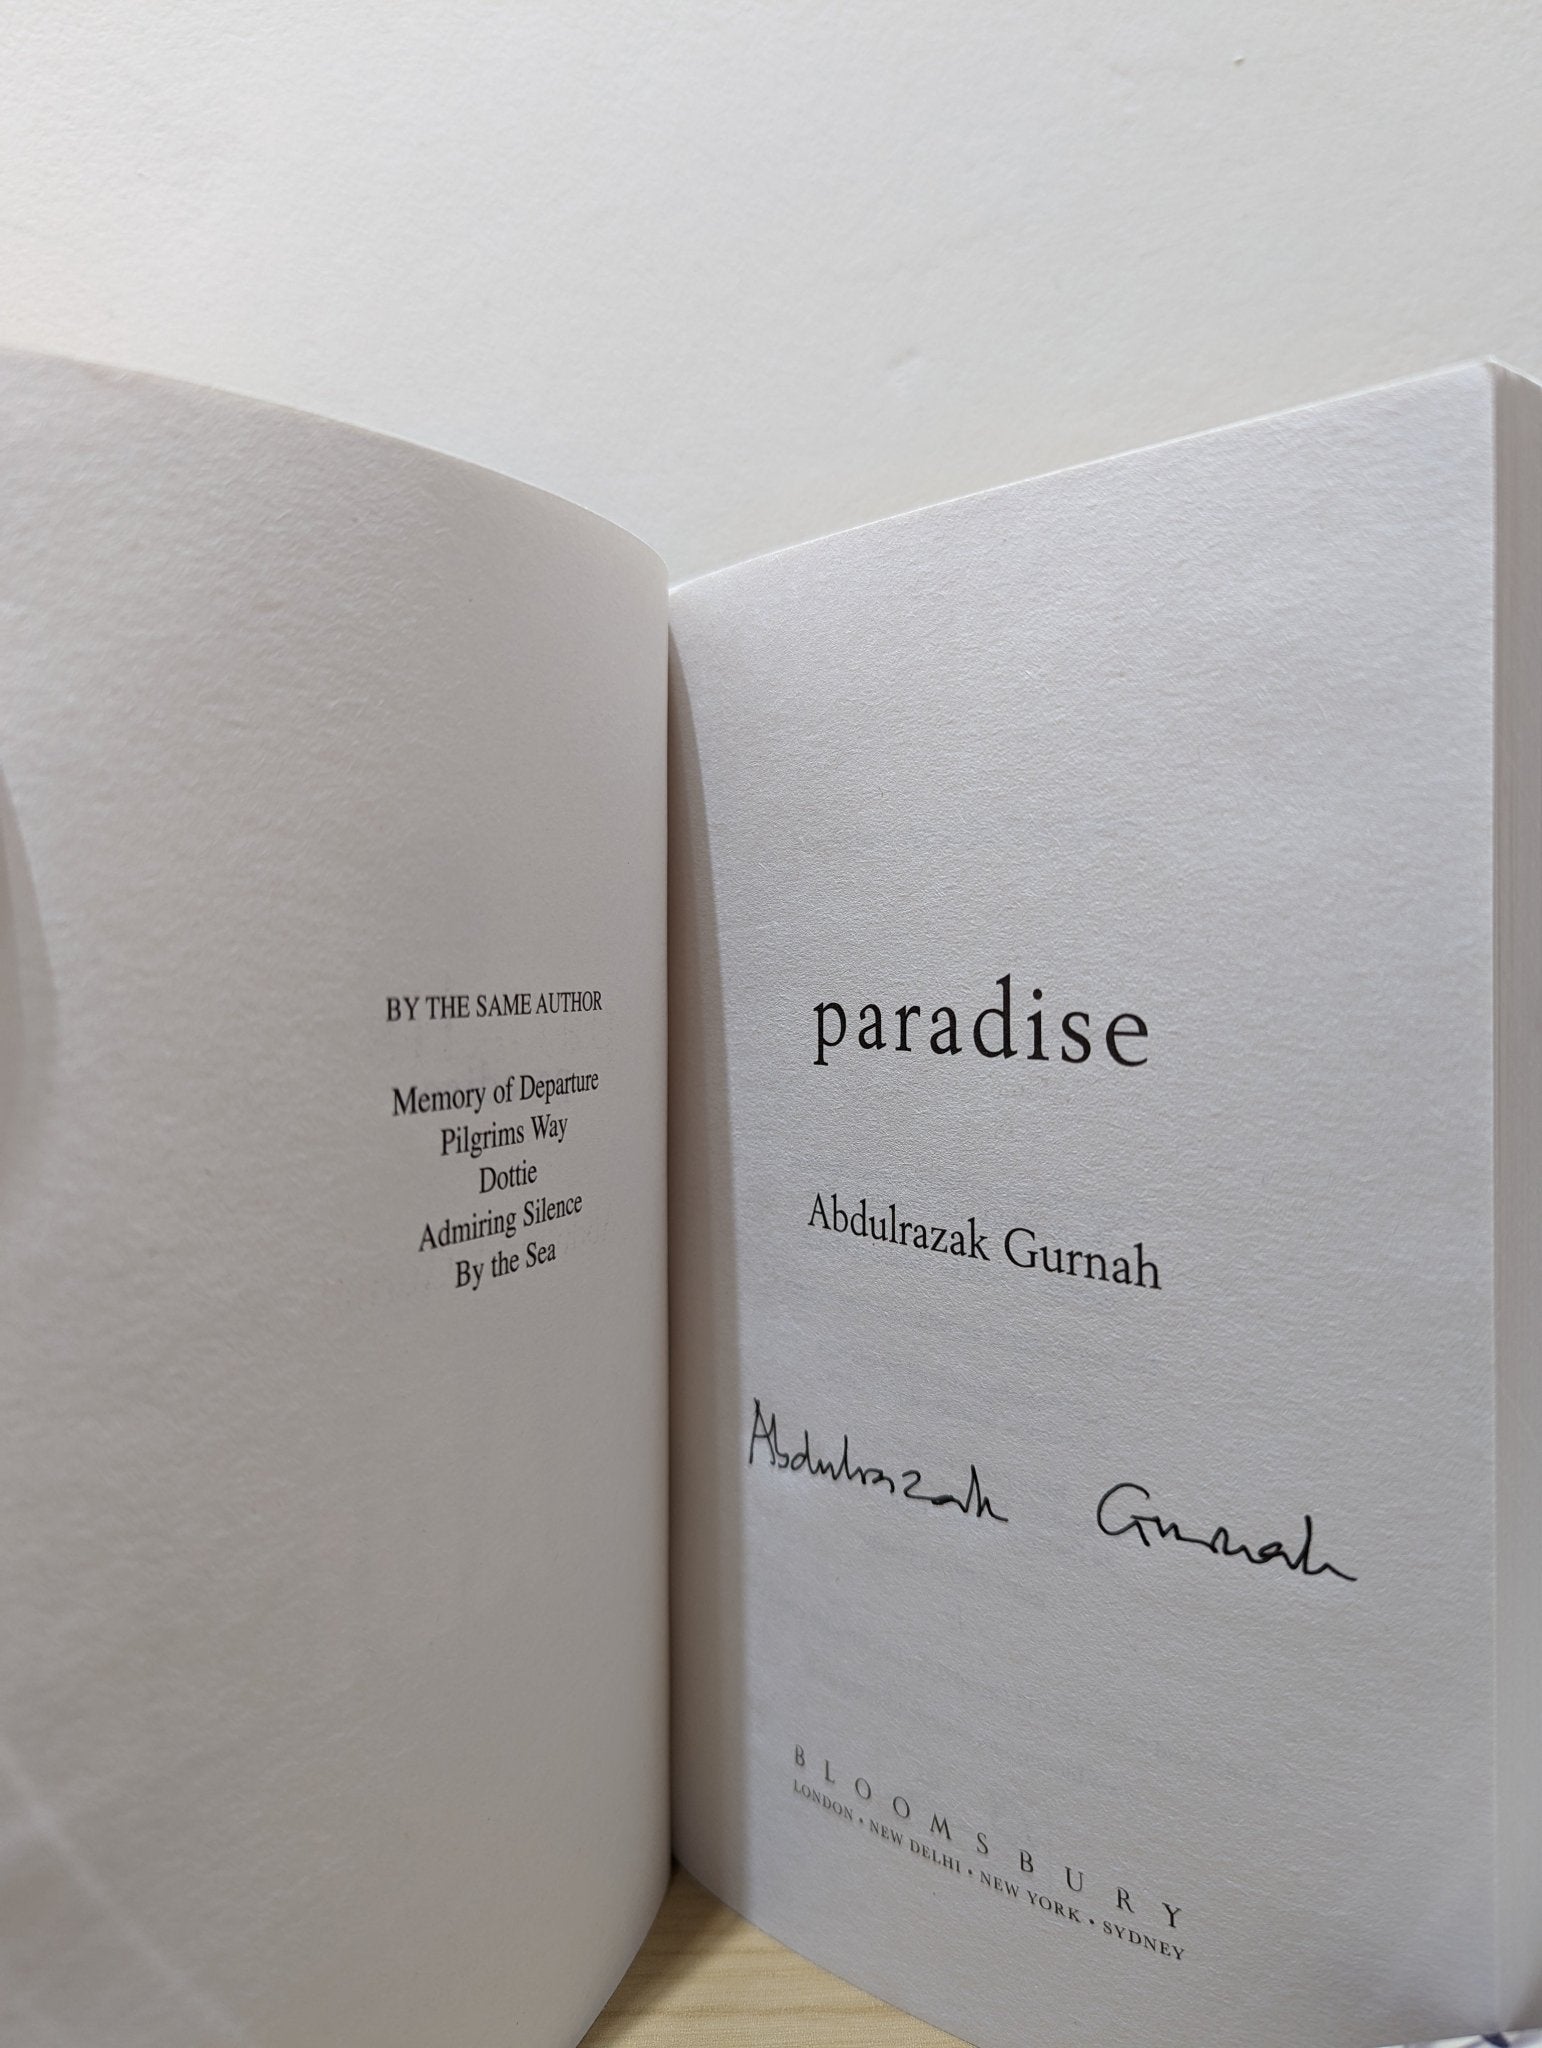 BY THE SAME AUTHOR
Memory of Departure
Pilgrims Way
Dottie
Admiring Silence
By the Sea
paradise
Abdulrazak Gurnah
Abdulrazak Gurnah
BLOOMSBURY
LONDON • NEW DELHI • NEW YORK • SYDNEY